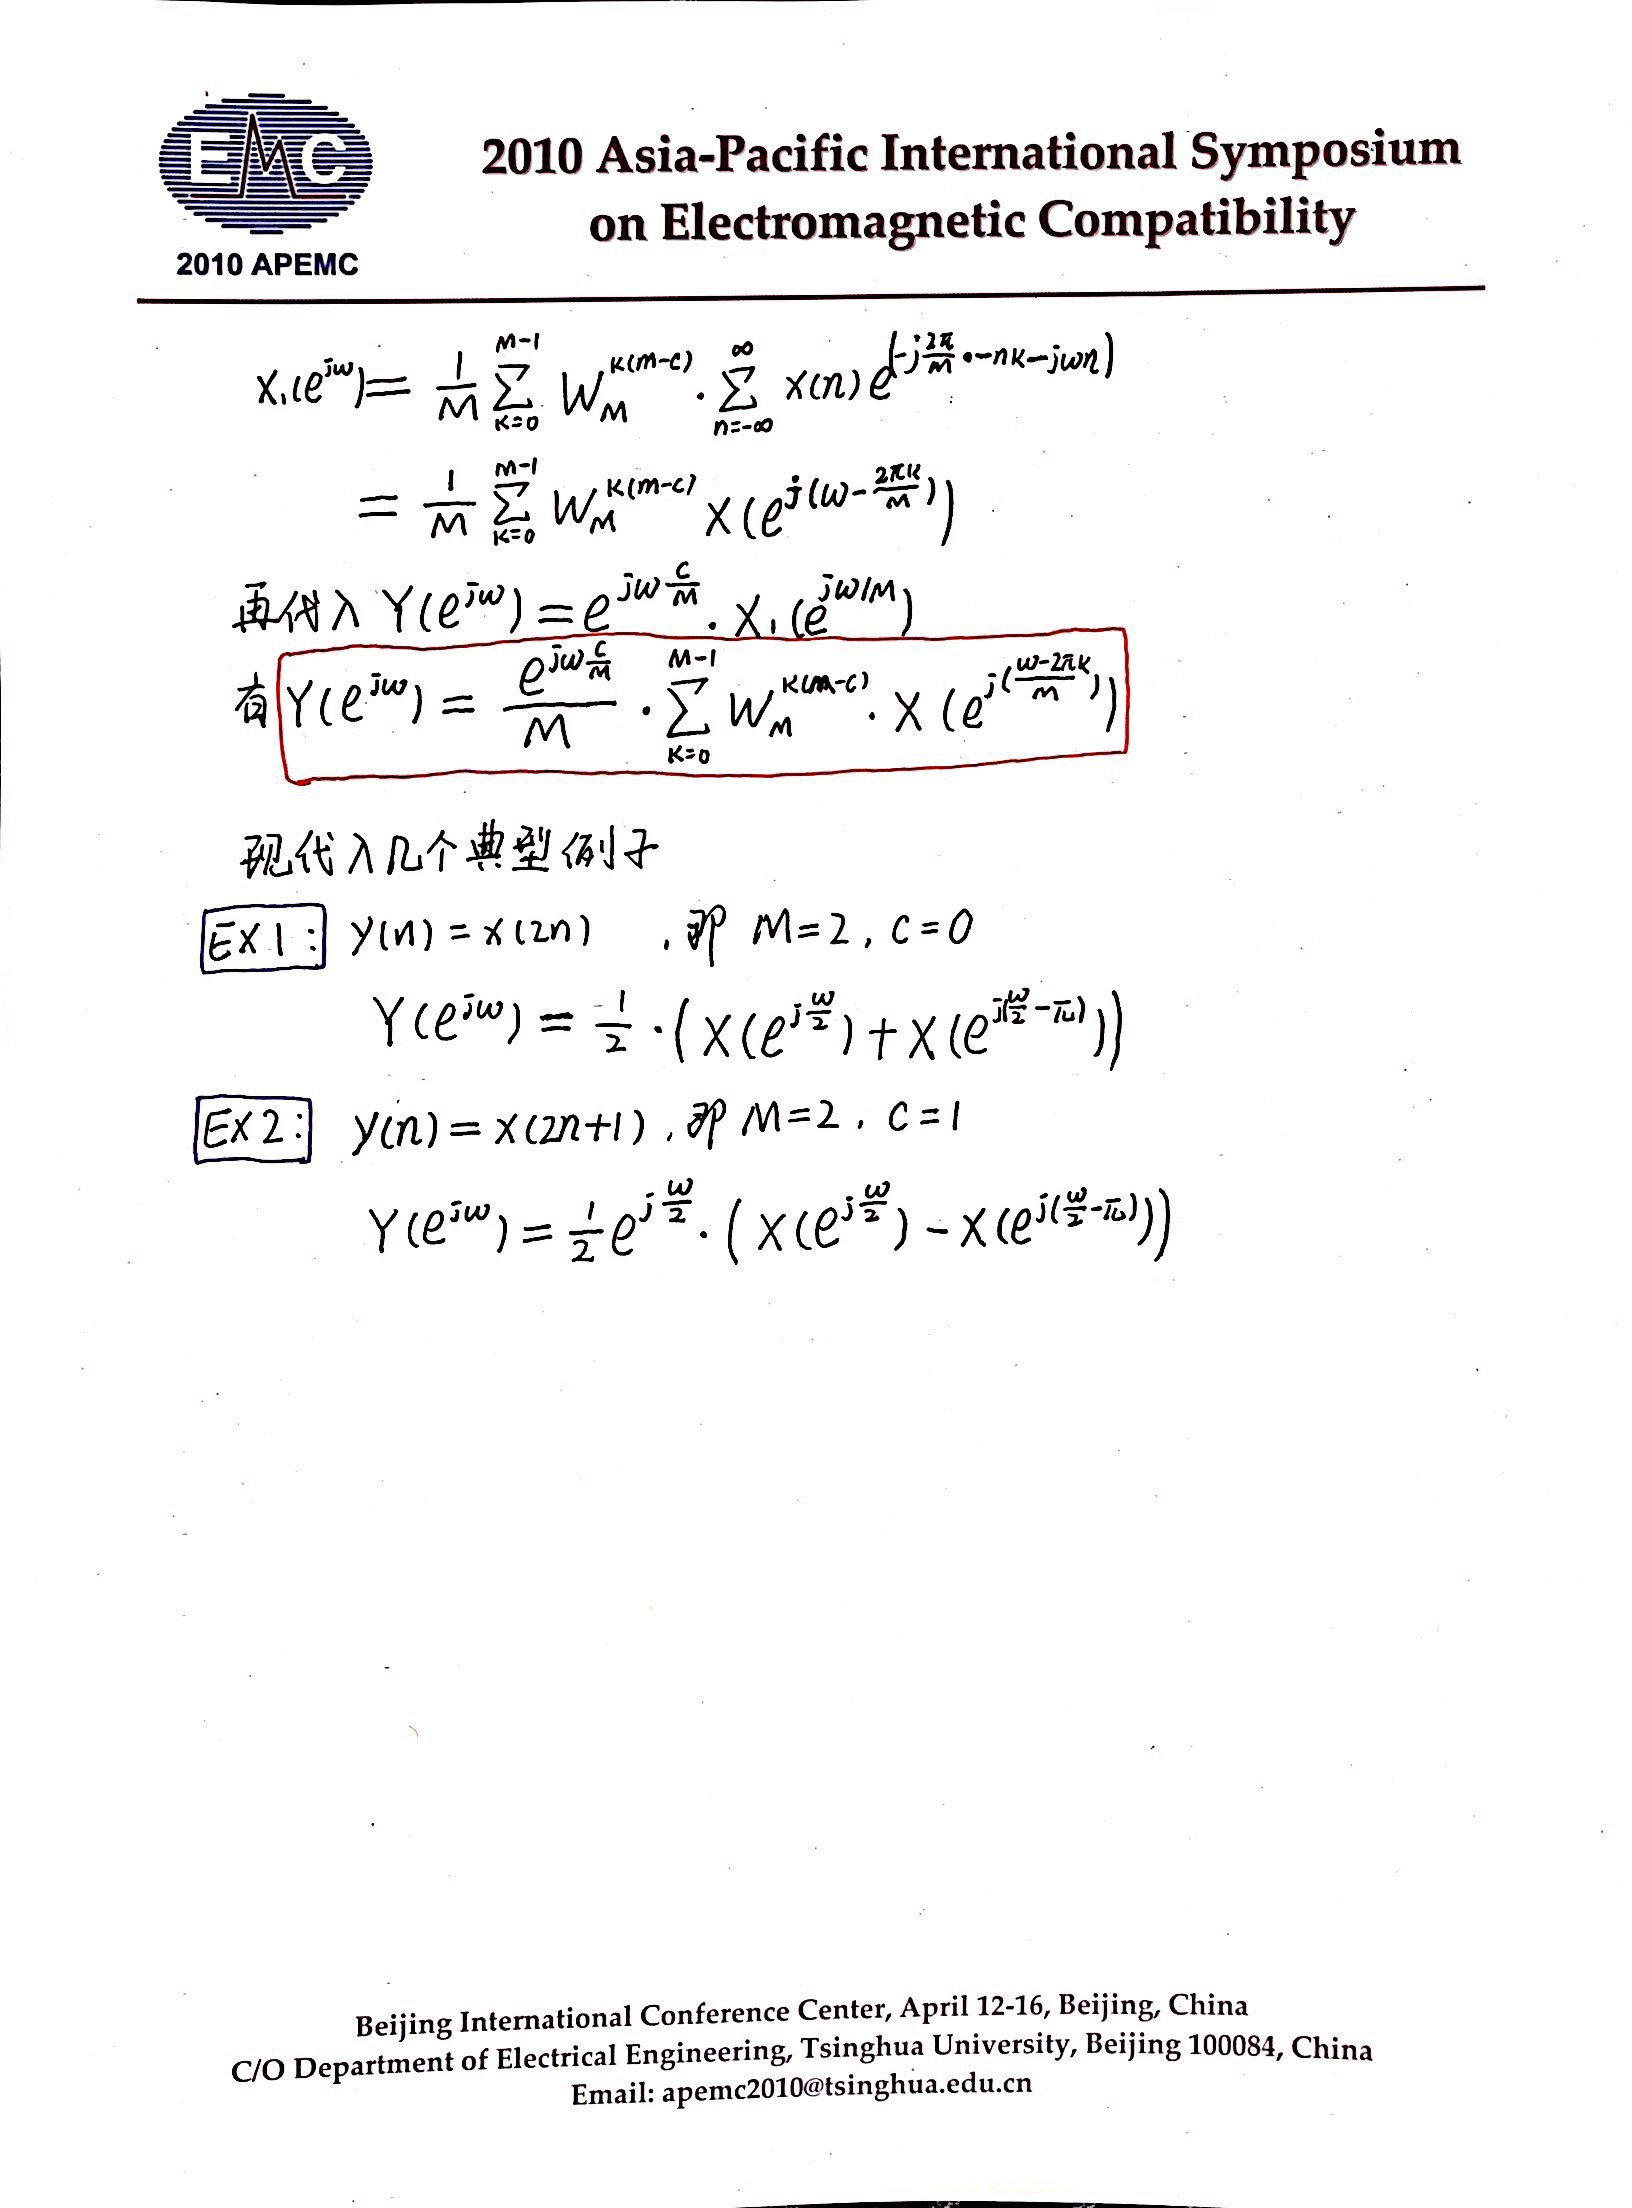 EMC
2010 APEMC
2010 Asia-Pacific International Symposium
on Electromagnetic Compatibility
X₁(e^{jω}) = \frac{1}{M} \sum_{k=0}^{M-1} W_M^{k(m-c)} · \sum_{n=-∞}^{∞} x(n) e^{(-j\frac{2π}{M}·-nk-jωn)}
= \frac{1}{M} \sum_{k=0}^{M-1} W_M^{k(m-c)} X(e^{j(ω-\frac{2πk}{M})})
再代入 Y(e^{jω}) = e^{jω\frac{c}{M}} · X₁(e^{jω/M})
有 Y(e^{jω}) = \frac{e^{jω\frac{c}{M}}}{M} · \sum_{k=0}^{M-1} W_M^{k(m-c)} · X(e^{j(\frac{ω-2πk}{M})})
现代入几个典型例子
EX1: y(n) = x(2n) , 即 M=2, c=0
Y(e^{jω}) = \frac{1}{2} · (X(e^{j\frac{ω}{2}}) + X(e^{j(\frac{ω}{2}-π)}))
EX2: y(n) = x(2n+1), 即 M=2, c=1
Y(e^{jω}) = \frac{1}{2} e^{j\frac{ω}{2}} · (X(e^{j\frac{ω}{2}}) - X(e^{j(\frac{ω}{2}-π)}))
Beijing International Conference Center, April 12-16, Beijing, China
C/O Department of Electrical Engineering, Tsinghua University, Beijing 100084, China
Email: apemc2010@tsinghua.edu.cn